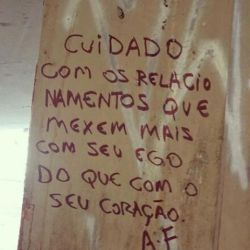 CUIDADO
COM OS RELACIO
NAMENTOS QUE
MEXEM MAIS
COM SEU EGO
DO QUE COM O
SEU CORAÇÃO.
A.F